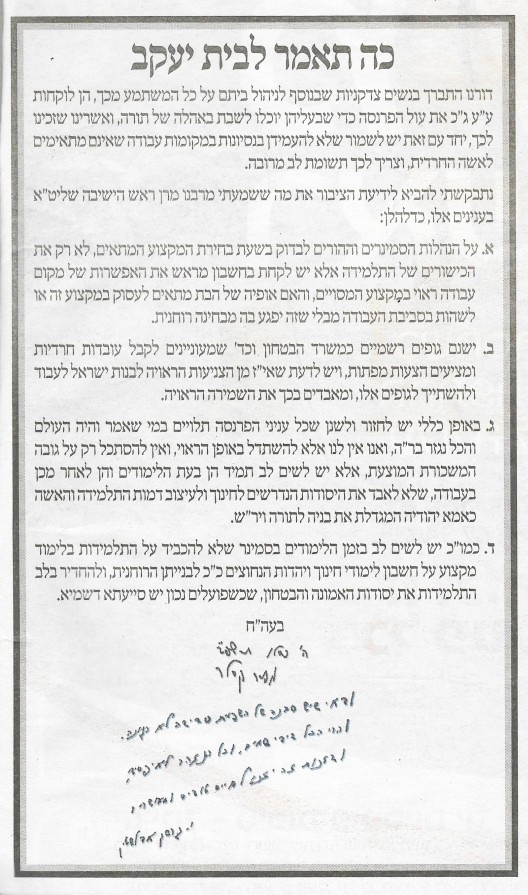 כה תאמר לבית יעקב
דורנו התברך בנשים צדקניות שבנוסף לניהול ביתם על כל המשתמע מכך, הן לוקחות
ע"ע ג"כ את עול הפרנסה כדי שבעליהן יוכלו לשבת באהלה של תורה, ואשרינו שזכינו
לכך, יחד עם זאת יש לשמור שלא להעמידן בנסיונות במקומות עבודה שאינם מתאימים
לאשה החרדית, וצריך לכך תשומת לב מרובה.
נתבקשתי להביא לידיעת הציבור את מה ששמעתי מרבנו מרן ראש הישיבה שליט"א
בענינים אלו, כדלהלן:
א. על הנהלות הסמינרים וההורים לבדוק בשעת בחירת המקצוע המתאים, לא רק את
הכישורים של התלמידה אלא יש לקחת בחשבון מראש את האפשרות של מקום
עבודה ראוי במקצוע המסויים, והאם אופיה של הבת מתאים לעסוק במקצוע זה או
לשהות בסביבת העבודה מבלי שזה יפגע בה מבחינה רוחנית.
ב. ישנם גופים רשמיים כמשרד הבטחון וכד' שמעוניינים לקבל עובדות חרדיות
ומציעים הצעות מפתות, ויש לדעת שאי"ז מן הצניעות הראויה לבנות ישראל לעבוד
ולהשתייך לגופים אלו, ומאבדים בכך את השמירה הראויה.
ג. באופן כללי יש לחזור ולשנן שכל עניני הפרנסה תלויים במי שאמר והיה העולם
והכל נגזר בר"ה, ואנו אין לנו אלא להשתדל באופן הראוי, ואין להסתכל רק על גובה
המשכורת המוצעת, אלא יש לשים לב תמיד הן בעת הלימודים והן לאחר מכן
בעבודה, שלא לאבד את היסודות הנדרשים לחינוך ולעיצוב דמות התלמידה והאשה
כאמא יהודיה המגדלת את בניה לתורה ויר"ש.
ד. כמו"כ יש לשים לב בזמן הלימודים בסמינר שלא להכביד על התלמידות בלימוד
מקצוע על חשבון לימודי חינוך ויהדות הנחוצים כ"כ לבנייתן הרוחנית, ולהחדיר בלב
התלמידות את יסודות האמונה והבטחון, שכשפועלים נכון יש סייעתא דשמיא.
בעה"ח